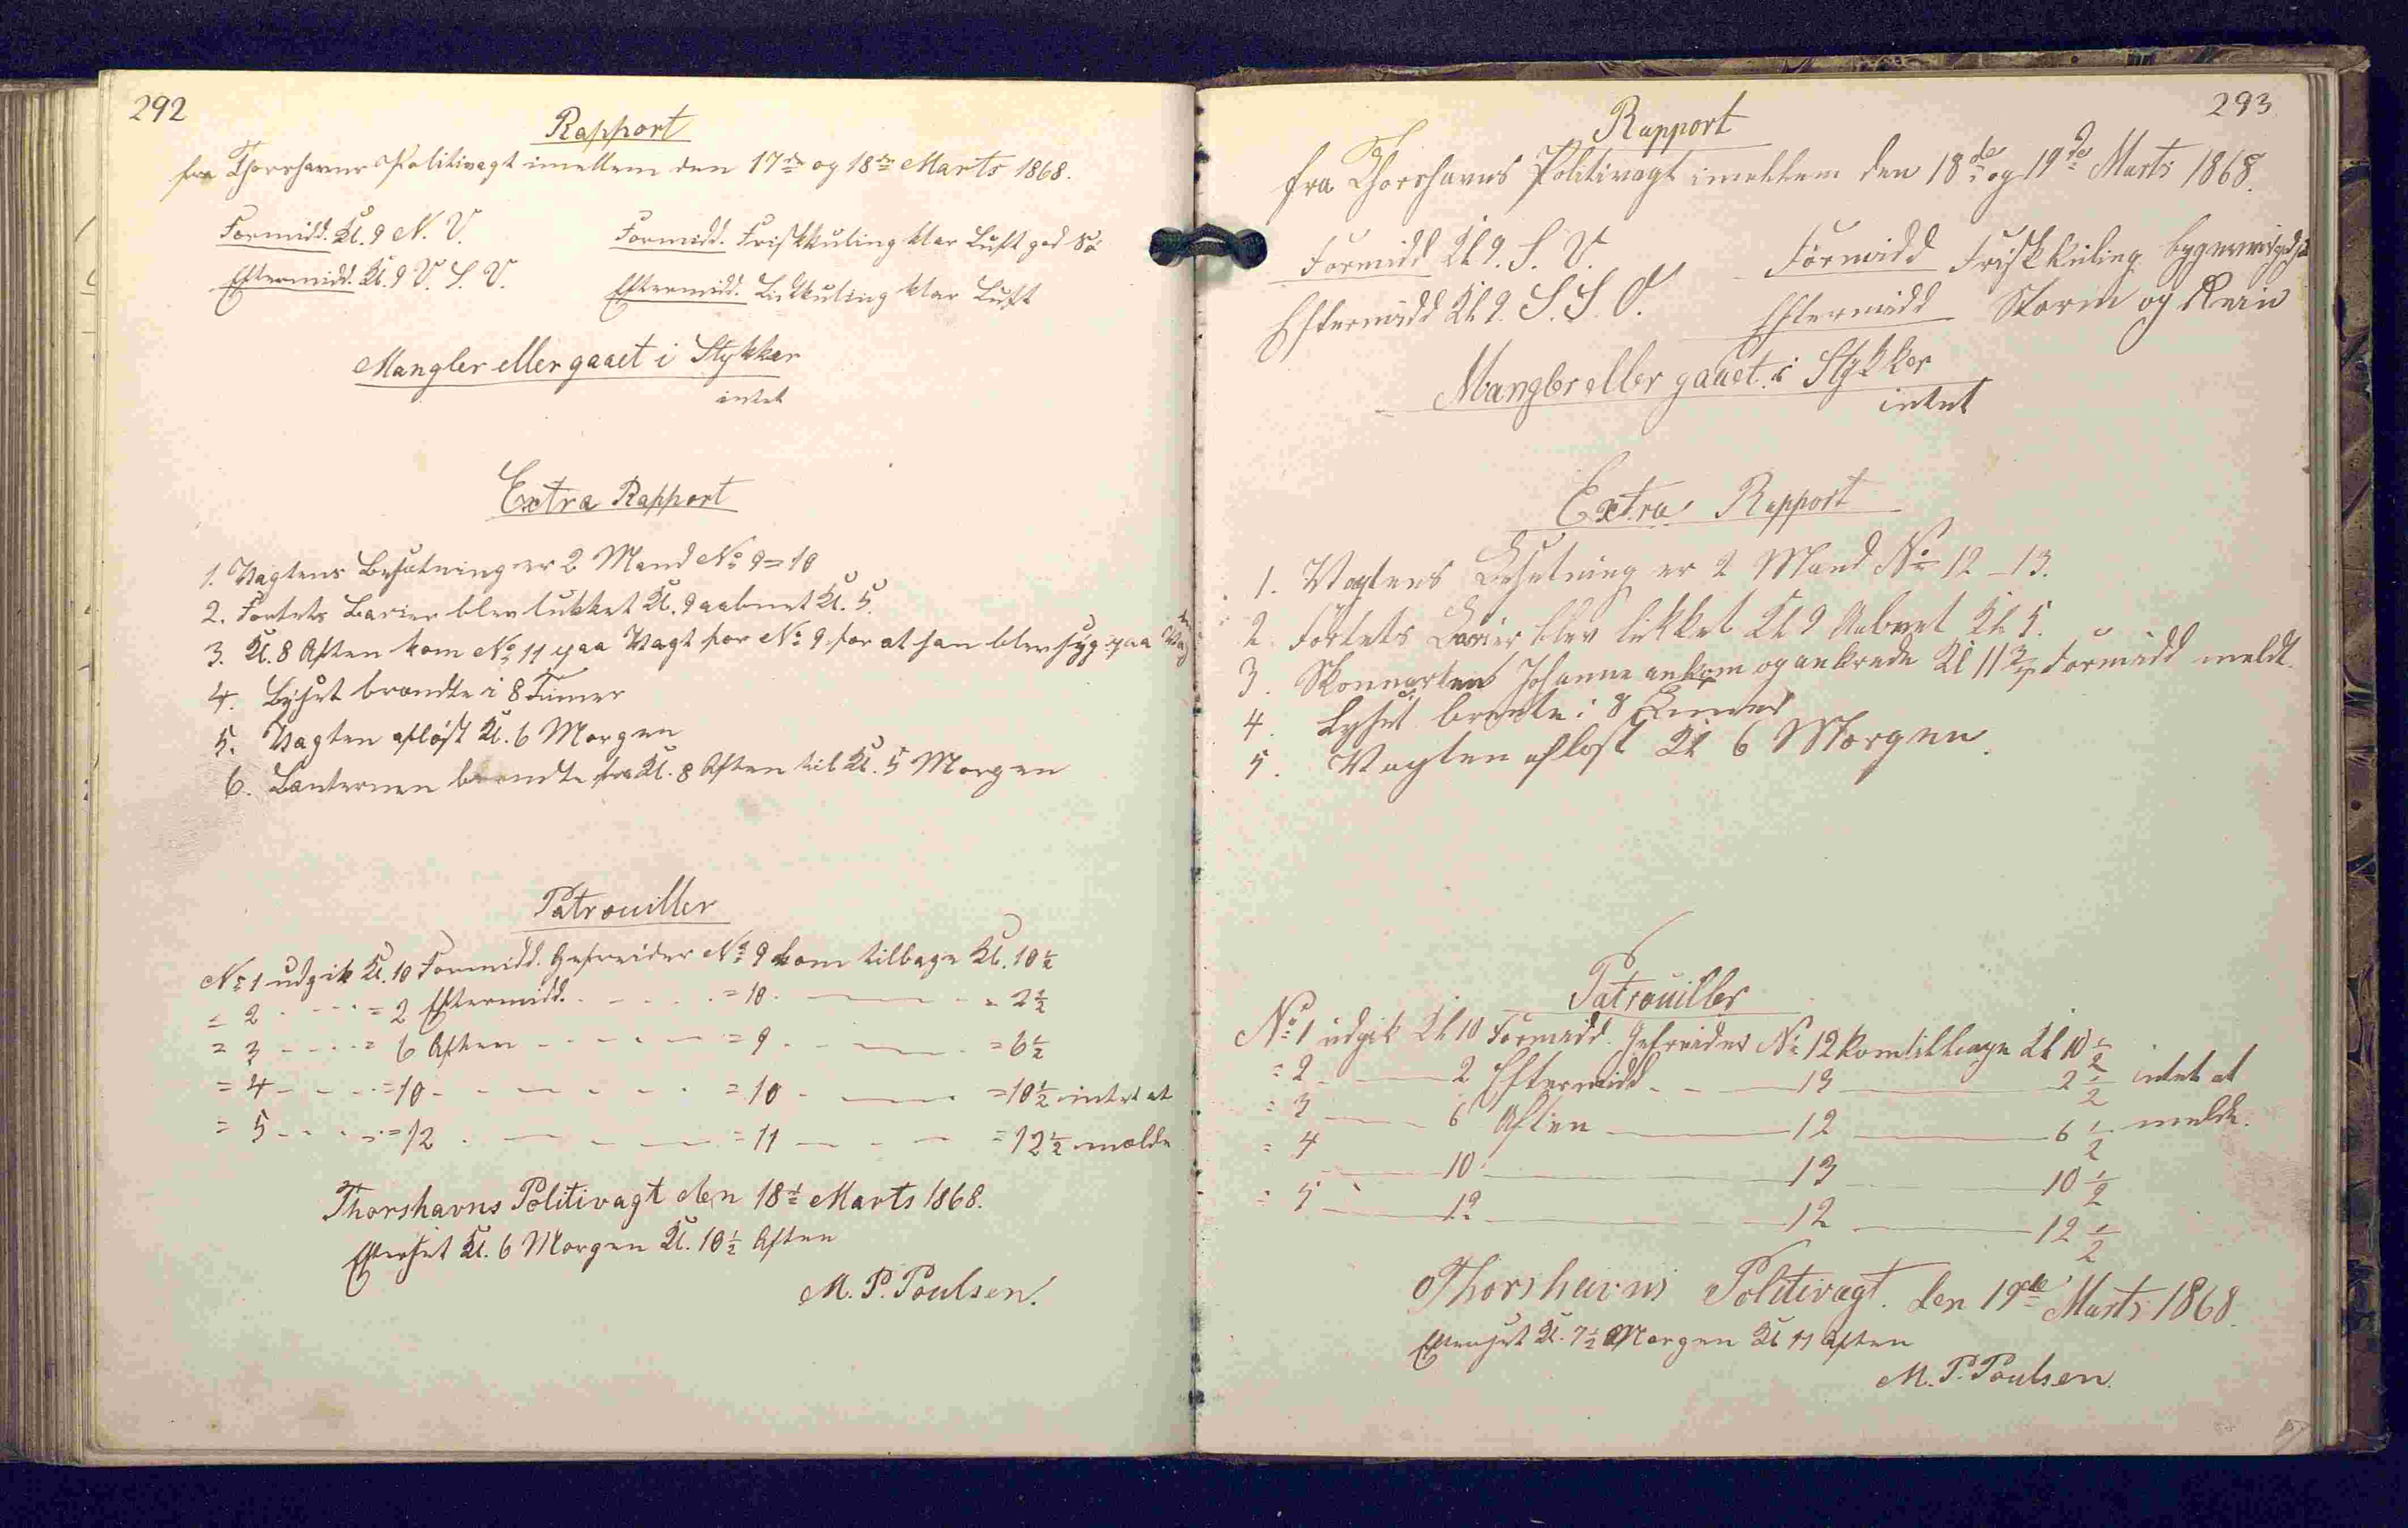 292
Rapport
fra Thorshavns Politivagt imellem den 17de og 18de Marts 1868.
Formidd. Kl. 9 N. V. Formidd. Frisk Kuling klar Luft god Sö
Eftermidd. Kl. 9 V. S. V. Eftermidd. Lidt Kuling klar Luft
Mangler eller gaaet i Stykker
intet
Extra Rapport
1. Vagtens Besætning er 2 Mand No 9 = 10
2. Fortets Barier blev lukket Kl. 9 aabnet Kl. 5.
3. Kl. 8 Aften kom No 11 paa Vagt for No 9 for at han blev syg paa Vagten
4. Lyset brændte i 8 Timer
5. Vagten afløst Kl. 6 Morgen
6. Lanternen brændte fra Kl. 8 Aften til Kl. 5 Morgen
Patrouiller
No 1 udgik Kl. 10 Formidd. Gefreider No 9 kom tilbage Kl. 10 1/2
= 2 - - - = 2 Eftermidd. - - - = 10 - - - = 2 1/2
= 3 - - - = 6 Aften - - - = 9 - - - = 6 1/2
= 4 - - - = 10 - - - = 10 - - - = 10 1/2 intet at
= 5 - - - = 12 - - - = 11 - - - = 12 1/2 melde
Thorshavns Politivagt den 18de Marts 1868.
Efterset Kl. 6 Morgen Kl. 10 1/2 Aften
M. P. Poulsen.
293
Rapport
fra Thorshavns Politivagt imellem den 18de og 19de Marts 1868.
Formidd Kl 9. S. V. Formidd Frisk Kuling
Eftermidd Kl 9. S. S. O. Eftermidd Storm og Rein
Mangler eller gaaet i Stykker
intet
Extra Rapport
1. Vagtens Besetning er 2 Mand No 12 - 13.
2. Fortets Barier blev lukket Kl 9 Aabnet Kl 5.
3. Skonnerten Johanne ankom og ankrede Kl 11 3/4 Formidd meldt.
4. Lyset brente i 8 Timer
5. Vagten aflost Kl 6 Morgen.
Patrouiller
No 1 udgik Kl 10 Formidd. Gefreider No 12 kom tilbage Kl 10 1/2
= 2 - - - 2 Eftermidd - - - 13 - - - 2 1/2 intet at
= 3 - - - 6 Aften - - - 12 - - - 6 1/2 melde.
= 4 - - - 10 - - - 13 - - - 10 1/2
= 5 - - - 12 - - - 12 - - - 12 1/2
Thorshavns Politivagt. den 19de Marts 1868.
Efterset Kl. 7 1/2 Morgen Kl 11 Aften
M. P. Poulsen.